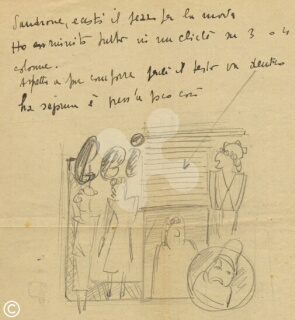 Sandrone, eccoti il pezzo per la moda
Ho riunito tutto in un cliché su 3 o 4
colonne.
Aspetta a far comporre perché il testo va dentro
la sagoma è press'a poco così
©